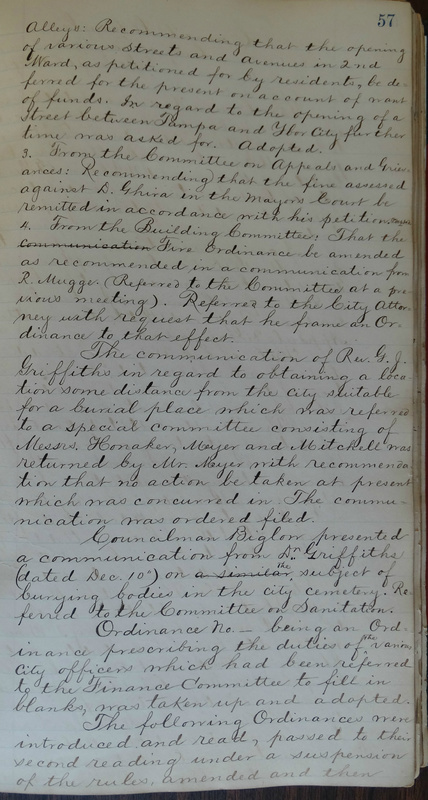 57
Alleys: Recommending that the opening
of various Streets and Avenues in 2nd
Ward, as petitioned for by residents, be de-
ferred for the present on account of want
of funds. In regard to the opening of a
Street between Tampa and Ybor City further
time was asked for. Adopted.
3. From the Committee on Appeals and Griev-
ances: Recommending that the fine assessed
against D. Ghira in the Mayors Court be
remitted in accordance with his petition.
4. From the Building Committee: That the
Communication Fire Ordinance be amended
as recommended in a communication from
R. Mugge. (Referred to the Committee at a pre-
vious meeting). Referred to the City Attor-
ney with request that he frame an Or-
dinance to that effect.
The communication of Rev. G. J.
Griffiths in regard to obtaining a loca-
tion some distance from the city suitable
for a burial place which was referred
to a special committee consisting of
Messrs. Honaker, Meyer and Mitchell was
returned by Mr. Meyer with recommenda-
tion that no action be taken at present
which was concurred in. The commu-
nication was ordered filed.
Councilman Biglow presented
a communication from Dr. Griffiths
(dated Dec. 10") on a similar the subject of
burying bodies in the city cemetery. Re-
ferred to the Committee on Sanitation.
Ordinance No. — being an Ord-
inance prescribing the duties of the various
City officers which had been referred
to the Finance Committee to fill in
blanks, was taken up and adopted.
The following Ordinances were
introduced and read, passed to their
second reading under a suspension
of the rules, amended and then